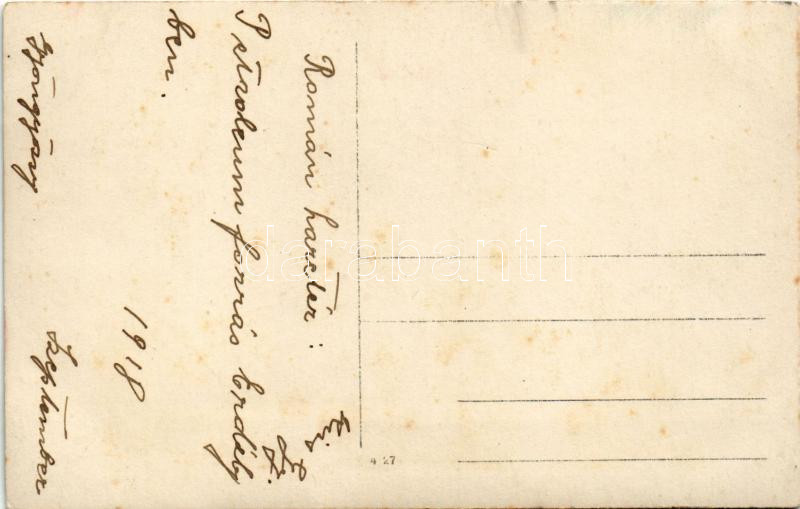 Román harctér:
Petroleum forrás Erdély
ben.
1918
Gyöngyösy
Szeptember
4 27
darabanth